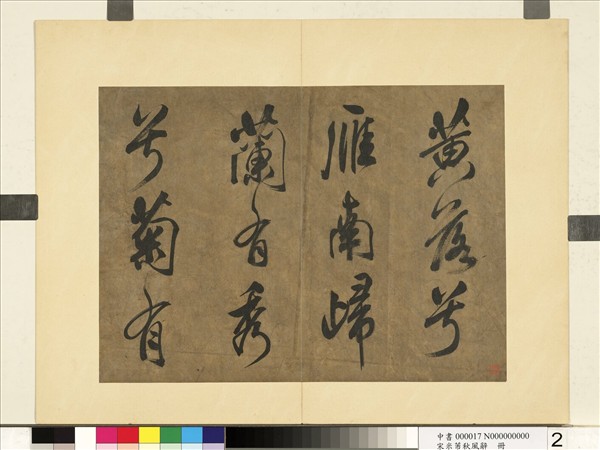 黄落兮
雁南歸
蘭有秀
兮菊有
中書 000017 N000000000
宋米芾秋風辭 冊
2